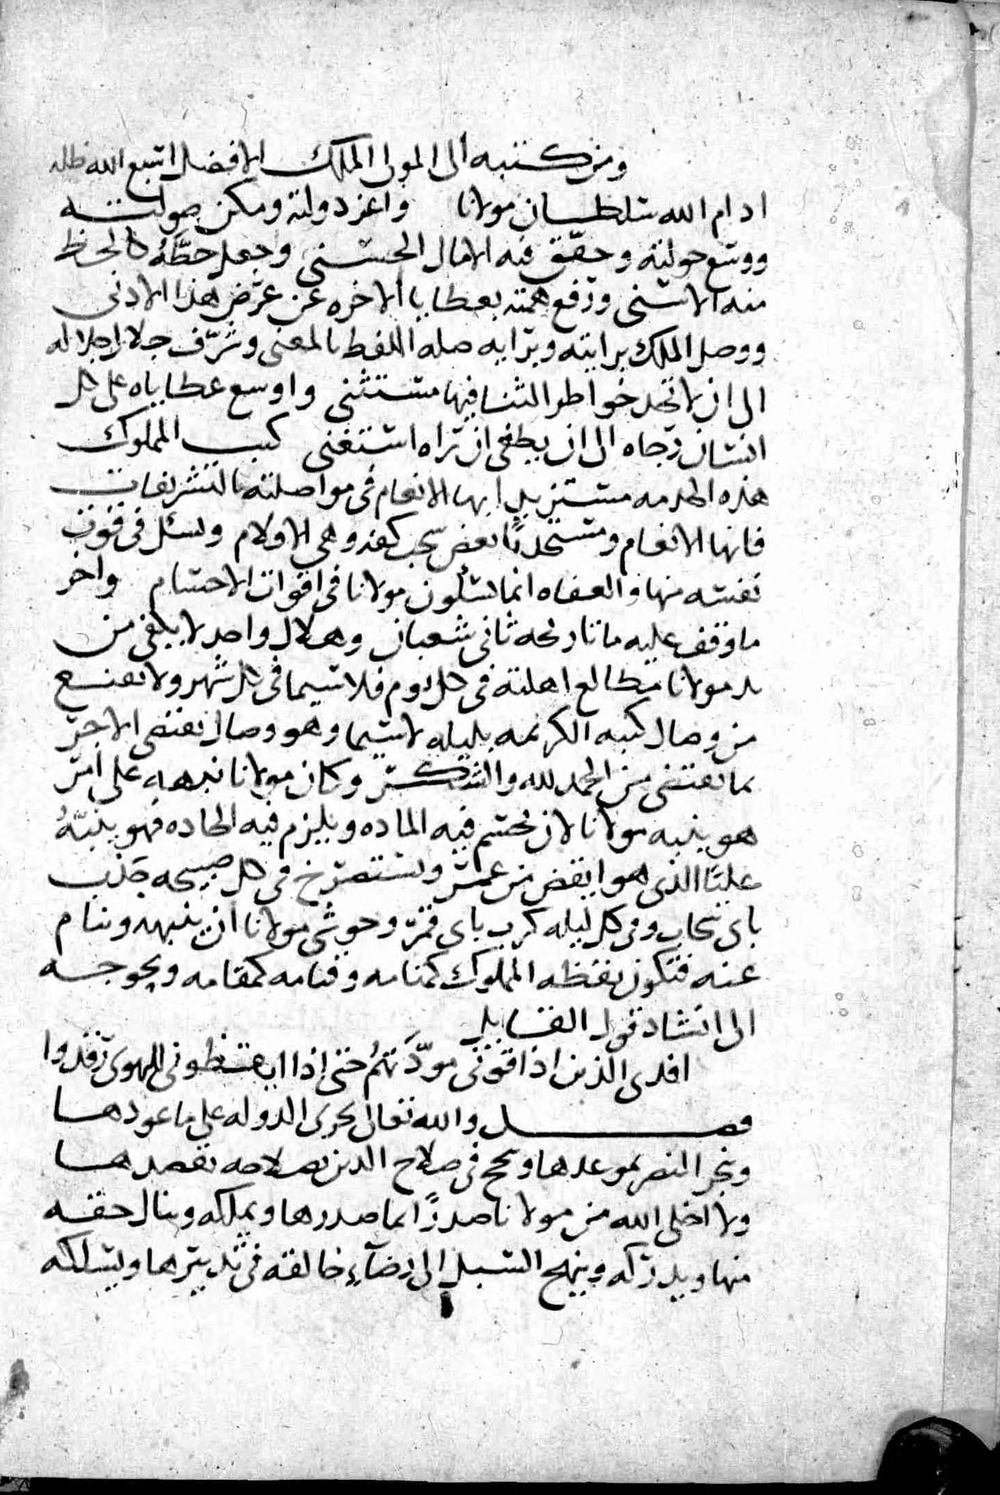 ومن كتبه الى المولى الملك الافضل اسبغ الله ظله
ادام الله سلطان مولانا واعز دولته ومكن صولته
ووسع حولته وحقق فيه الامال الحسنى وجعل حظه كالحظ
منه الاسنى ورفع همته بعطايا الاخره عن عرض هذا الادنى
ووصل الملك برايته وبرايه صله اللفظ بالمعنى وشرّف جلال اجلاله
الى ان لا تجد خواطر الثنا فيها مستثنى واوسع عطاياه على كل
انسان رجاه الى ان يطغى ان تراه استغنى كتب المملوك
هذه الخدمه مستزيدا بها الانعام فى مواصلته بالتشريفات
فانها الانعام ومستجديًا بعض سحب كفه وهى الاقلام ويسئل فى قوت
نفسه منها والعفاه انما يسئلون مولانا فى اقوات الاجسام واخر
ما وقف عليه ما تاريخه ثانى شعبان وهلال واحد لا يكفى من
يد مولانا مطالع اهلته فى كل يوم فلا سيما فى كل شهر ولا يقنع
من وصال كتبه الكريمه بليله لا سيما وهو وصال يقتضى الاجر
بما يقتضى من الحمد لله والشكر وكان مولانا نبهه على امر
هو ينبه مولانا لان يحسم فيه الماده ويلزم فيه الجاده فهو ينبه
علينا الذى هو ابقض من عمر ونستصرخ فى كل صبيحه جذب
باى سحاب وفى كل ليله كرب باى قمر وحوشى مولانا ان ينبهه وينام
عنه فتكون يقظه المملوك كمنامه وقيامه كمقامه ويحوجه
الى انشاد قول القايل
افدى الذين اذاقونى مودّتهم حتى اذا ايقظونى للهوى رقدوا
فصل والله تعالى يجرى الدوله على ما عودها
وينجز النصر بموعدها وينجح فى صلاح الدين بصلاحه مقصدها
ولا اخلى الله من مولانا صدرًا انما صدرها ويملكه وينال حقه
منها ويدركه وينهج السبل الى رضآء خالقه فى تدبيرها ويسلكه